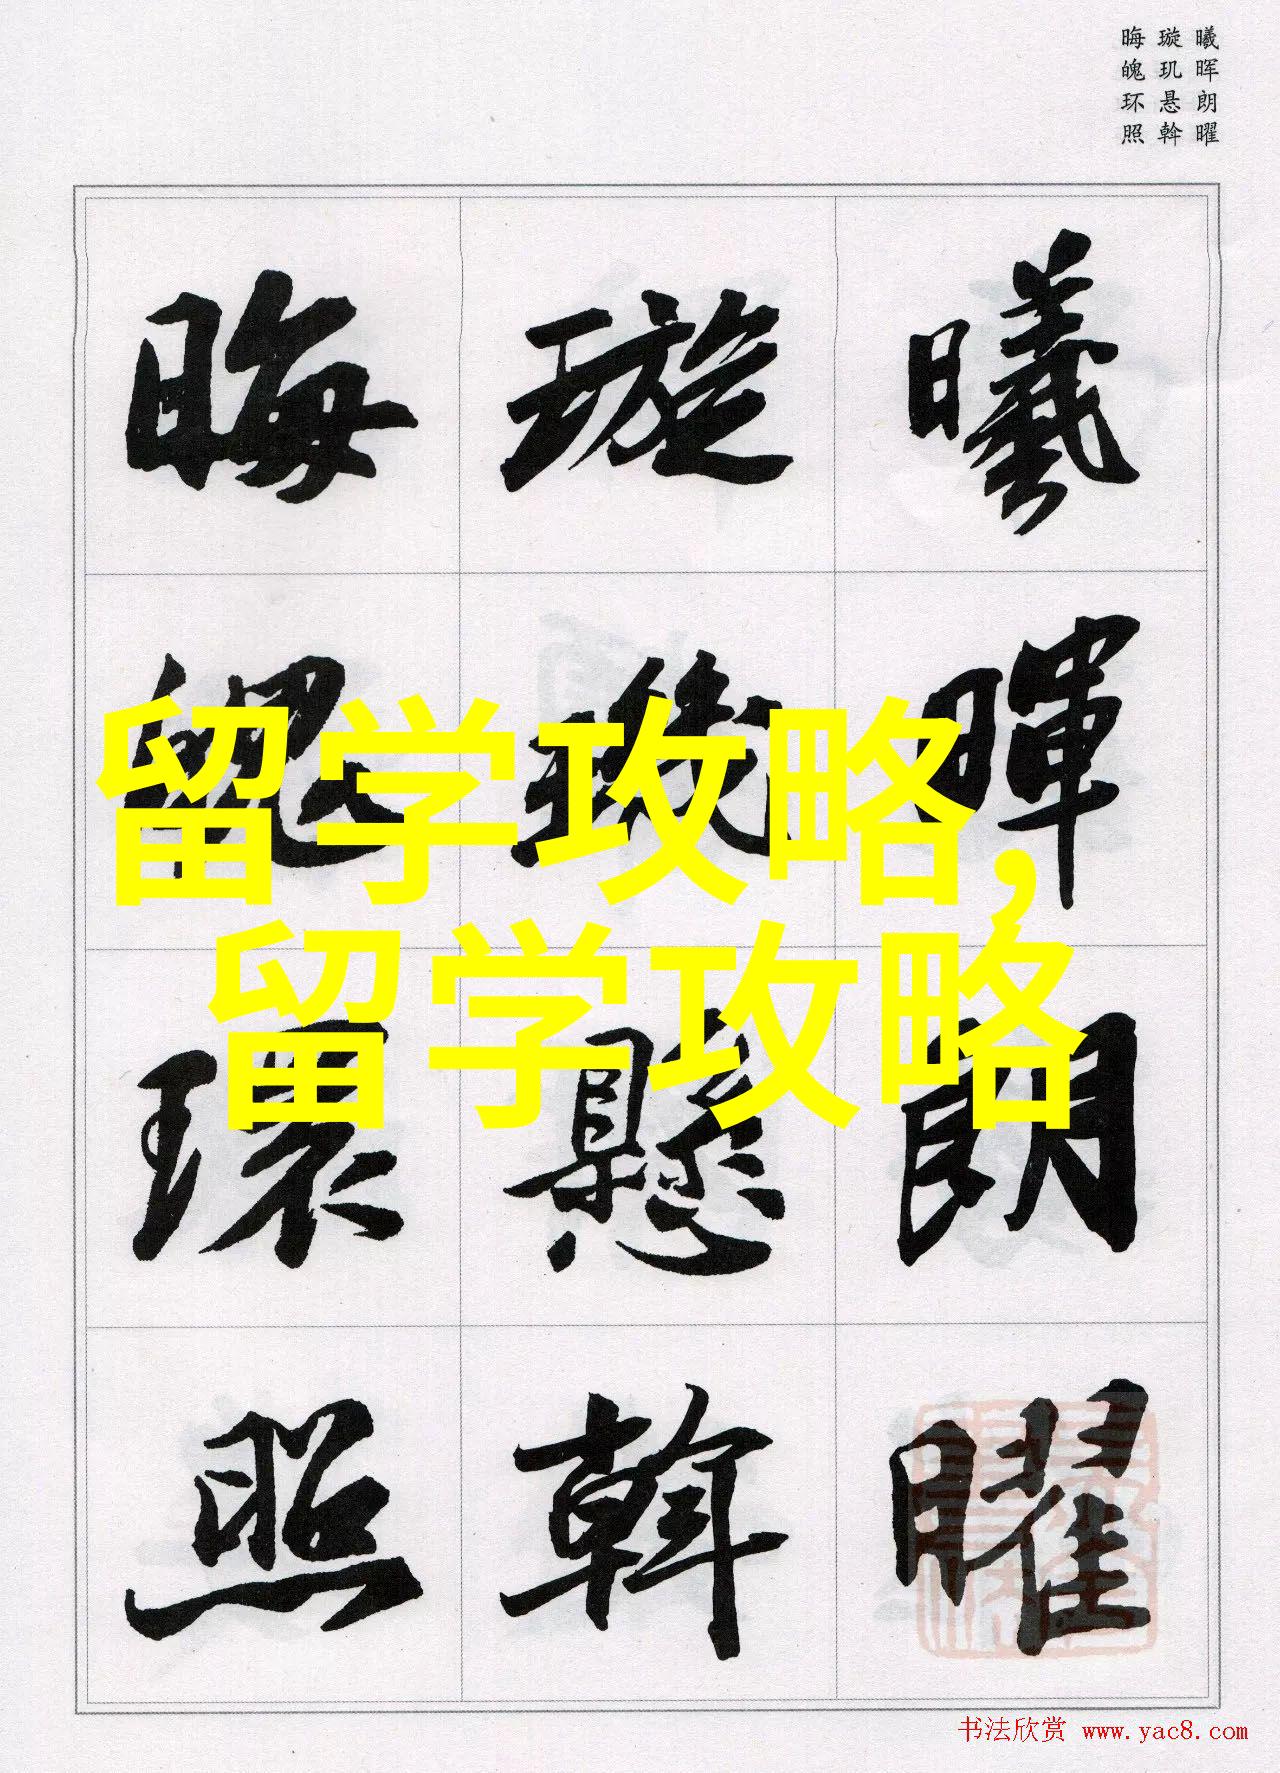 曦晖朗曜
璇玑悬斡
晦魄环照
曦暉朗曜
璇璣懸斡
晦魄環照
留学攻略,
留学攻略
书法欣赏 www.yac8.com